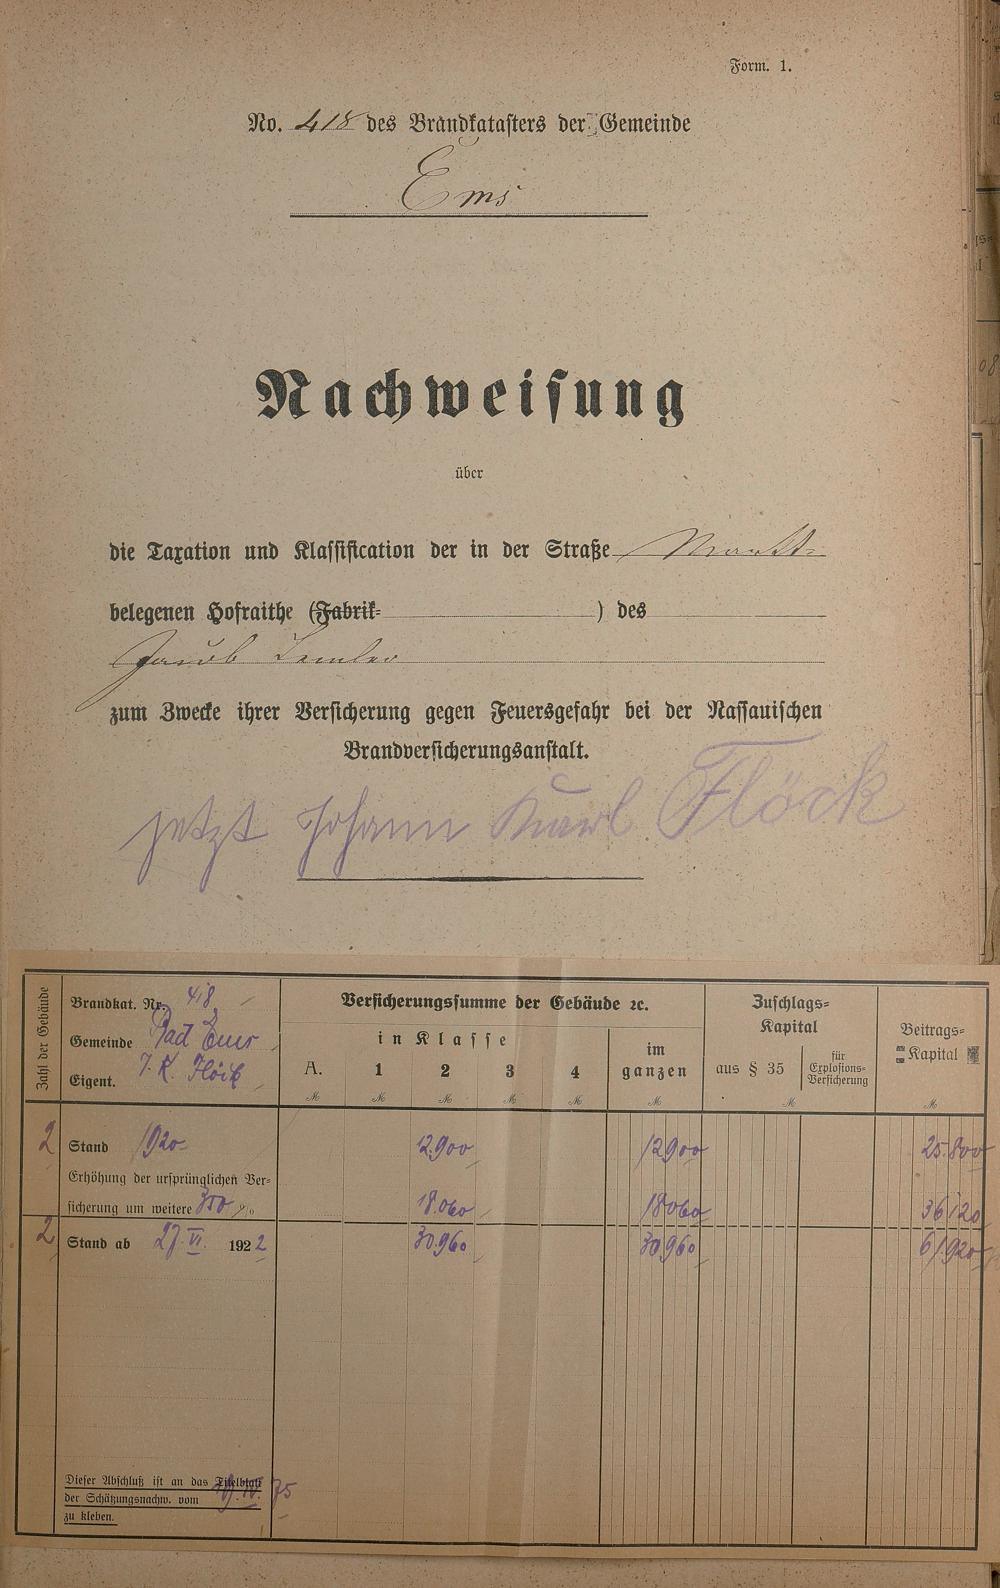 Form. 1.
No. 418 des Brandkatasters der Gemeinde
Ems
Nachweisung
über
die Taxation und Klassification der in der Straße Markt-
belegenen Hofraithe (Fabrik- ) des
Jacob Lemler
zum Zwecke ihrer Versicherung gegen Feuersgefahr bei der Nassauischen
Brandversicherungsanstalt.
jetzt Johann Karl Flöck
Zahl der Gebäude
Brandkat. Nr. 418
Gemeinde Bad Ems
Eigent. J. K. Flöck
Versicherungssumme der Gebäude ꝛc.
in Klasse
A. 1 2 3 4
im
ganzen
Zuschlags-
Kapital
aus § 35
für
Explosions-
Versicherung
Beitrags-
Kapital
M M M M M M M M
2 Stand 1920 12.900 12900 25.800
Erhöhung der ursprünglichen Ver-
sicherung um weitere 350 % 18.060 18060 36120
2 Stand ab 27. VI. 1922 30.960 30960 61920
Dieser Abschluß ist an das Titelblatt
der Schätzungsnachw. vom 75
zu kleben.